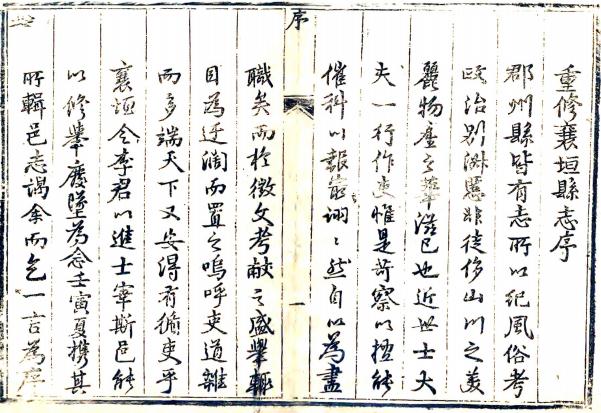 重修襄垣縣志序
郡州縣皆有志所以紀風俗考
政治別淑慝非徒侈山川之美
麗物產之華滋已也近世士大
夫一行作吏惟是苛察以擅能
催科以報最詡〻然自以為盡
序
一
職矣而於徵文考獻之盛舉輒
目為迂濶而置之嗚呼吏道雜
而多端天下又安得有循吏乎
襄垣令李君以進士宰斯邑能
以修舉廢墜為念壬寅夏携其
所輯邑志謁余而乞一言為序